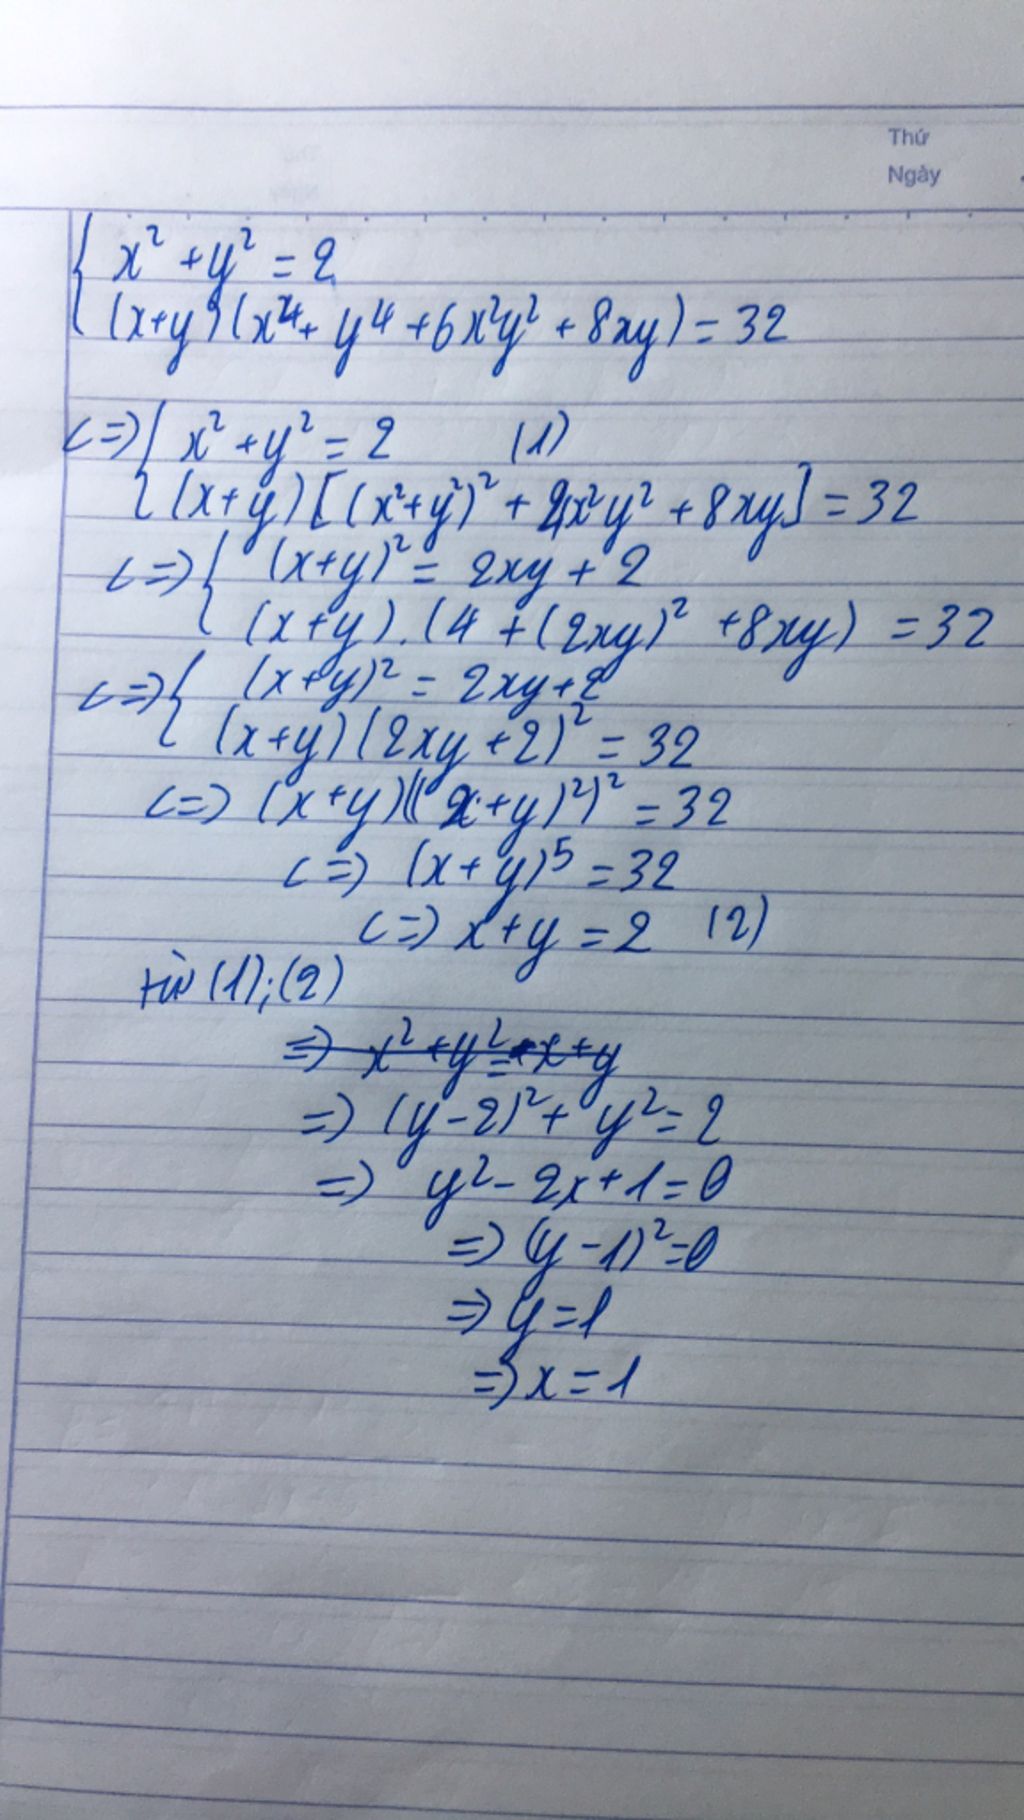 Thứ
Ngày
{ x² + y² = 2
(x+y)(x⁴ + y⁴ + 6x²y² + 8xy) = 32
<=> { x² + y² = 2 (1)
(x+y)[(x²+y²)² + 4x²y² + 8xy] = 32
<=> { (x+y)² = 2xy + 2
(x+y).(4 + (2xy)² + 8xy) = 32
<=> { (x+y)² = 2xy+2
(x+y)(2xy+2)² = 32
<=> (x+y)((x+y)²)² = 32
<=> (x+y)⁵ = 32
<=> x+y = 2 (2)
từ (1);(2)
=> x² + y² = x+y
=> (y-2)² + y² = 2
=> y² - 2x + 1 = 0
=> (y-1)² = 0
=> y = 1
=> x = 1